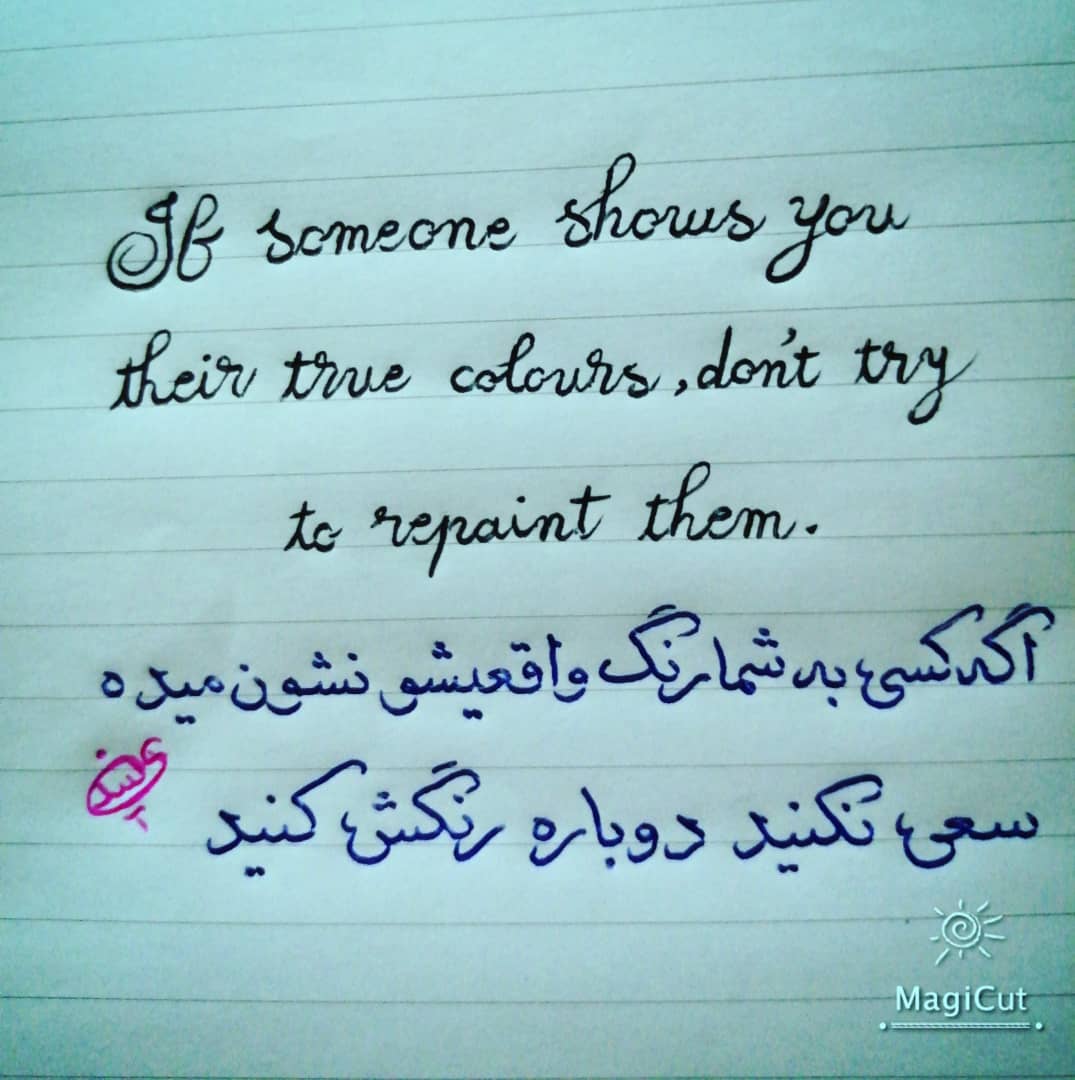 If someone shows you
their true colours, don't try
to repaint them.
اگه کسی به شما رنگ واقعیشو نشون میده
سعی نکنید دوباره رنگش کنید
MagiCut